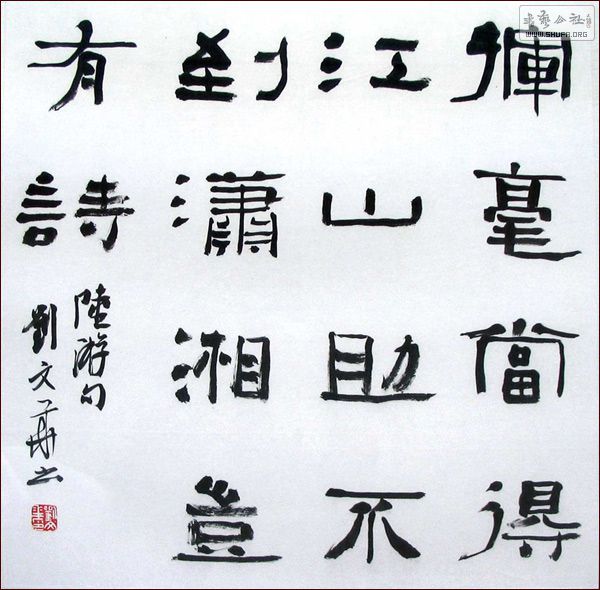 揮毫當得
江山助不
到瀟湘豈
有詩
陸游句
劉文華书
书艺公社
WWW.SHUFA.ORG